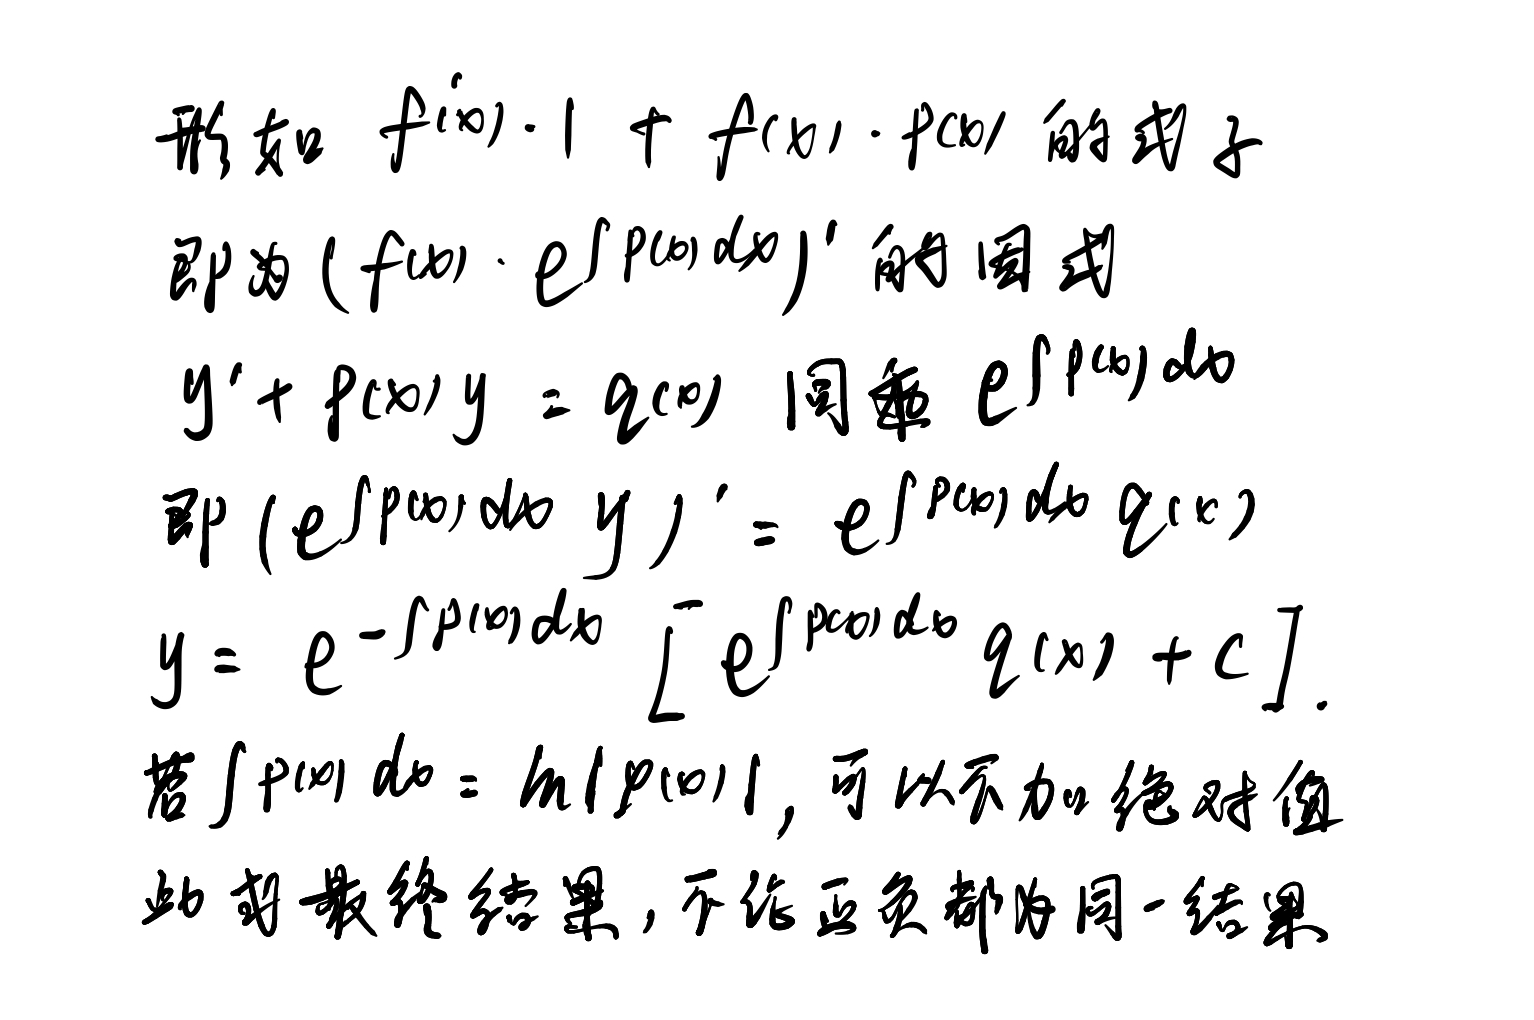 形如 f'(x)·1 + f(x)·p(x) 的式子
即为 (f(x)·e^{∫p(x)dx})' 的因式
y' + p(x)y = q(x) 同乘 e^{∫p(x)dx}
即 (e^{∫p(x)dx} y)' = e^{∫p(x)dx} q(x)
y = e^{-∫p(x)dx} [e^{∫p(x)dx} q(x) + c].
若∫p(x)dx = ln|φ(x)|, 可以不加绝对值
此或最终结果, 不论正负都为同一结果